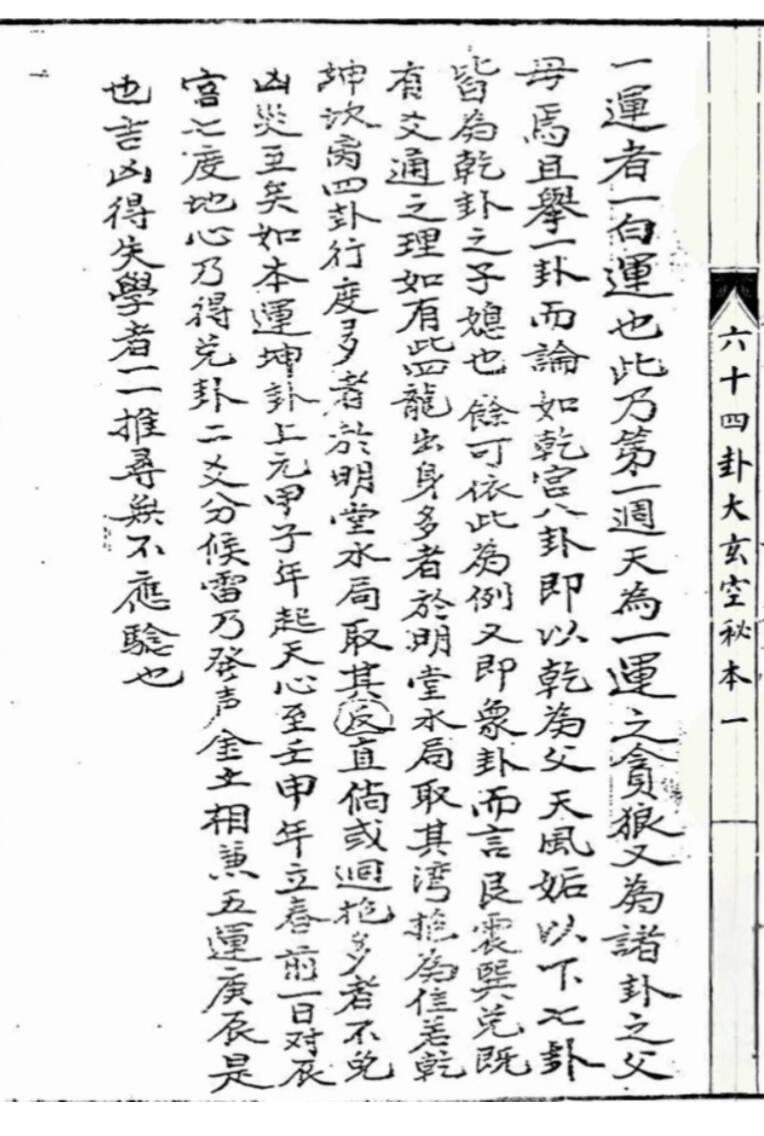 六十四卦大玄空秘本一
一運者一白運也此乃第一週天為一運之貪狼又為諸卦之父
母焉且舉一卦而論如乾宮八卦即以乾為父天風姤以下七卦
皆為乾卦之子媳也餘可依此為例又即眾卦而言艮震巽兌既
有爻通之理如有此四龍出身多者於明堂水局取其湾抱為佳若乾
坤坎离四卦行度多者於明堂水局取其反直倘或迴抱多者不免
凶災至矣如本運坤卦上元甲子年起天心至壬申年立春前一日对辰
宮七度地心乃得兌卦二爻分候雷乃發声金土相兼五運庚辰是
也吉凶得失學者一一推尋無不應驗也